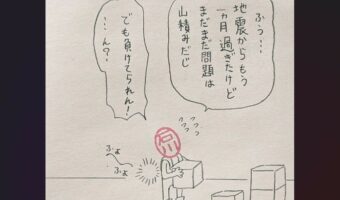 ふぅ…
地震からもう
一ヵ月過ぎたけど
まだまだ問題は
山積みだじ
でも負けてられん!
…ん?
ふよ
ふよ
石川